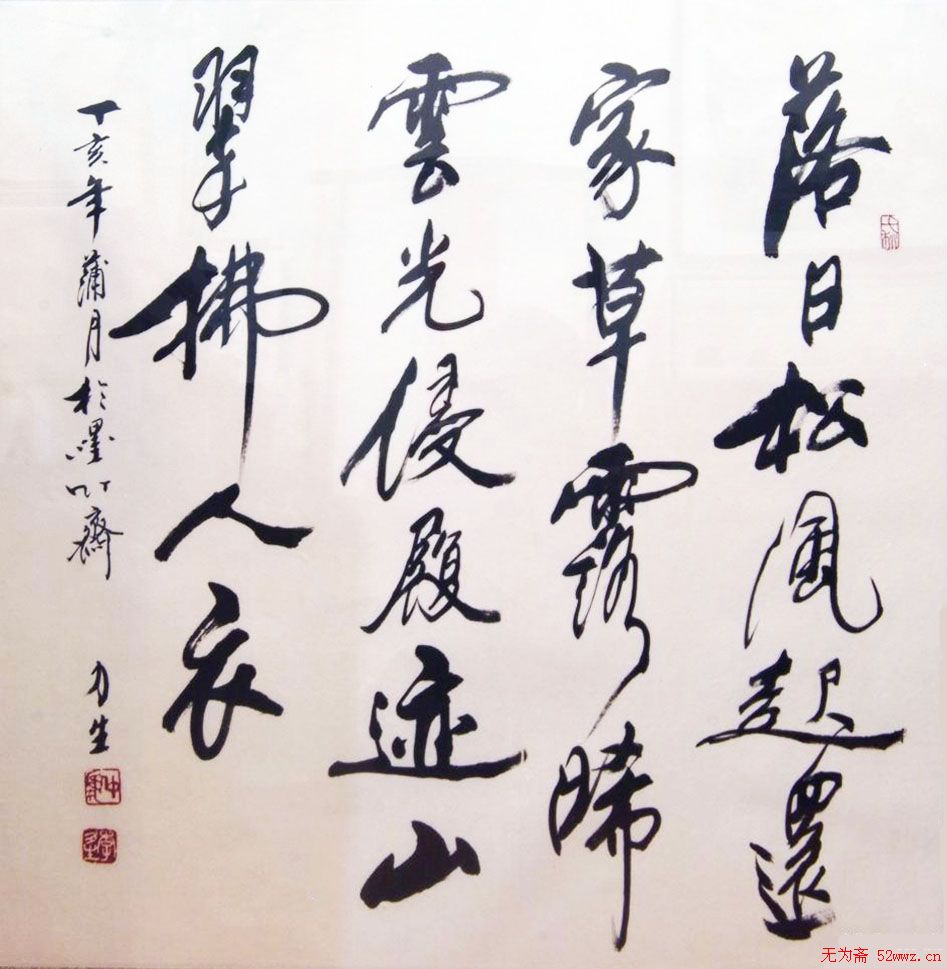 落日松風起還
家草露晞
雲光侵履迹山
翠拂人衣
丁亥年蒲月於墨竹齋 力生
无为斋 52wwz.cn